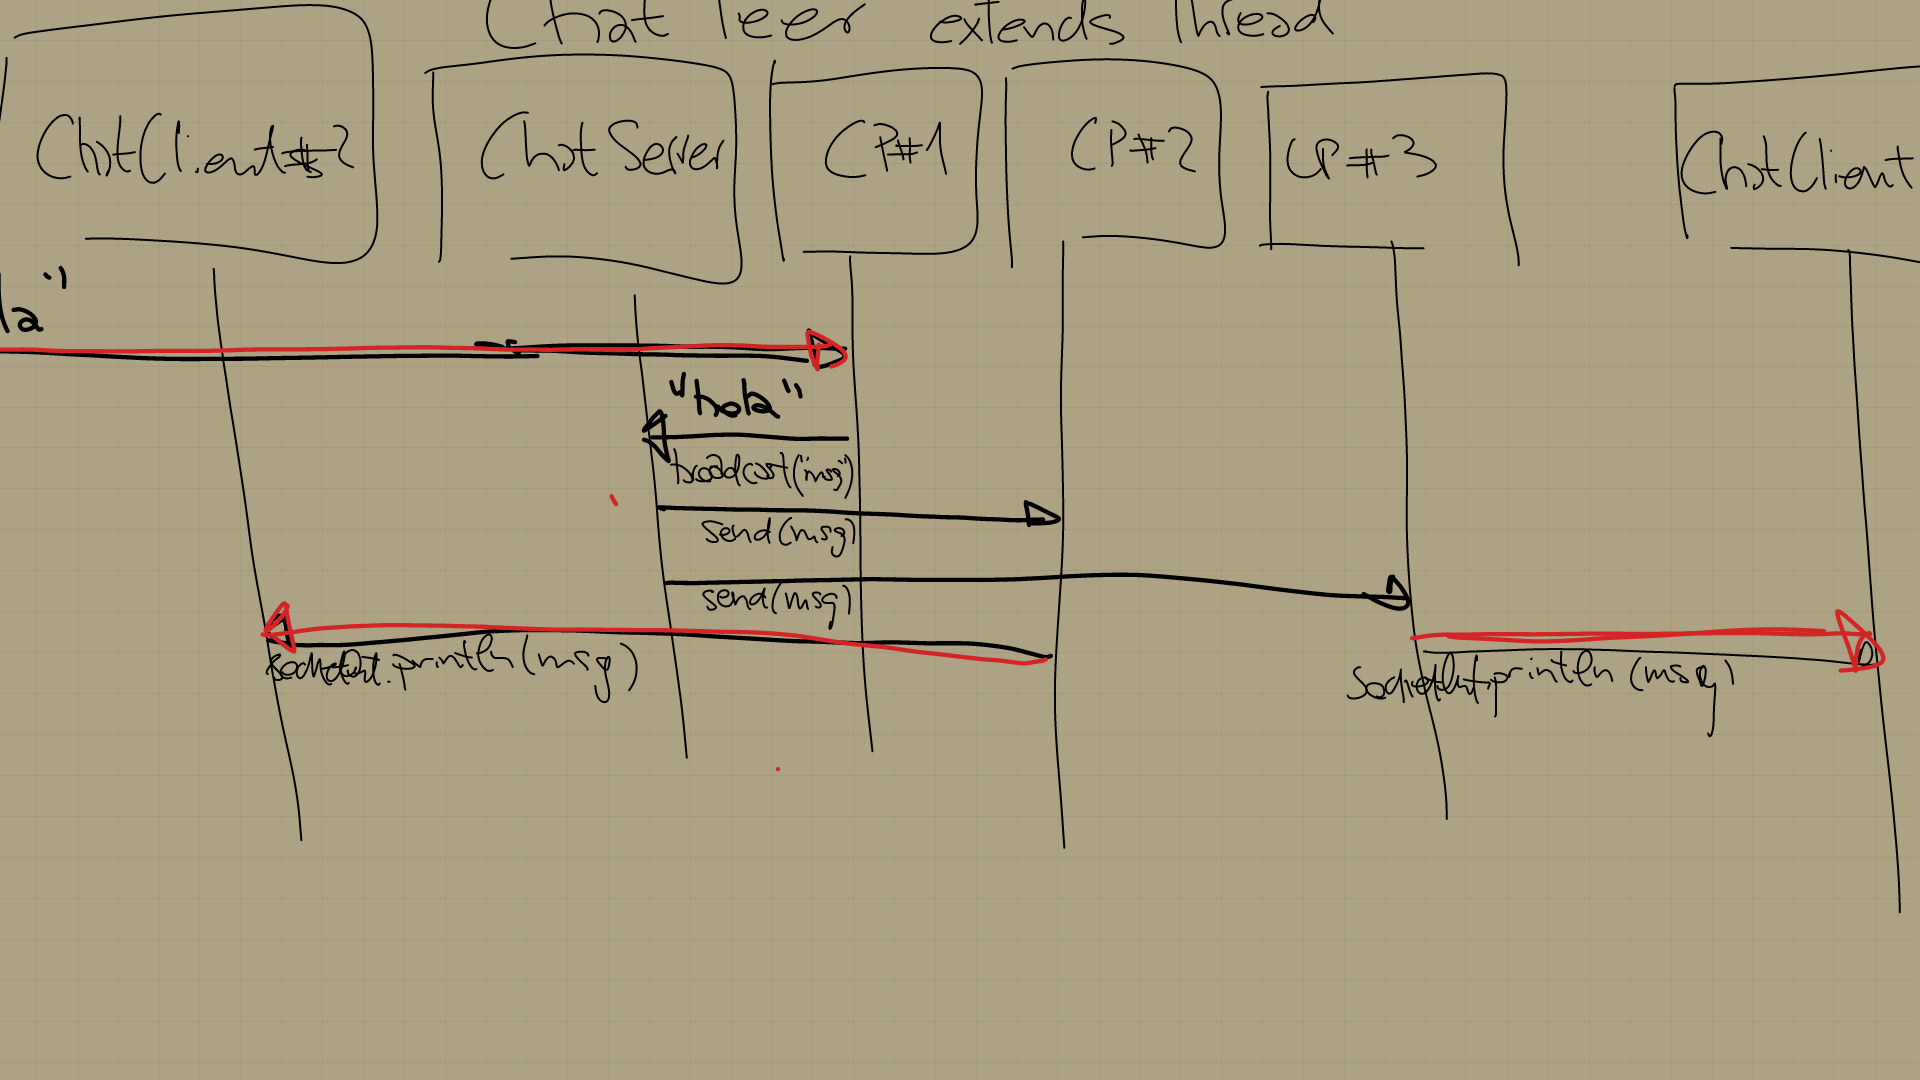 Chat Peer extends Thread
ChatClient#2
ChatServer
CP#1
CP#2
CP#3
ChatClient
la"
"hola"
broadcast("msg")
send(msg)
send(msg)
socketOut.println(msg)
SocketOut.println(msg)